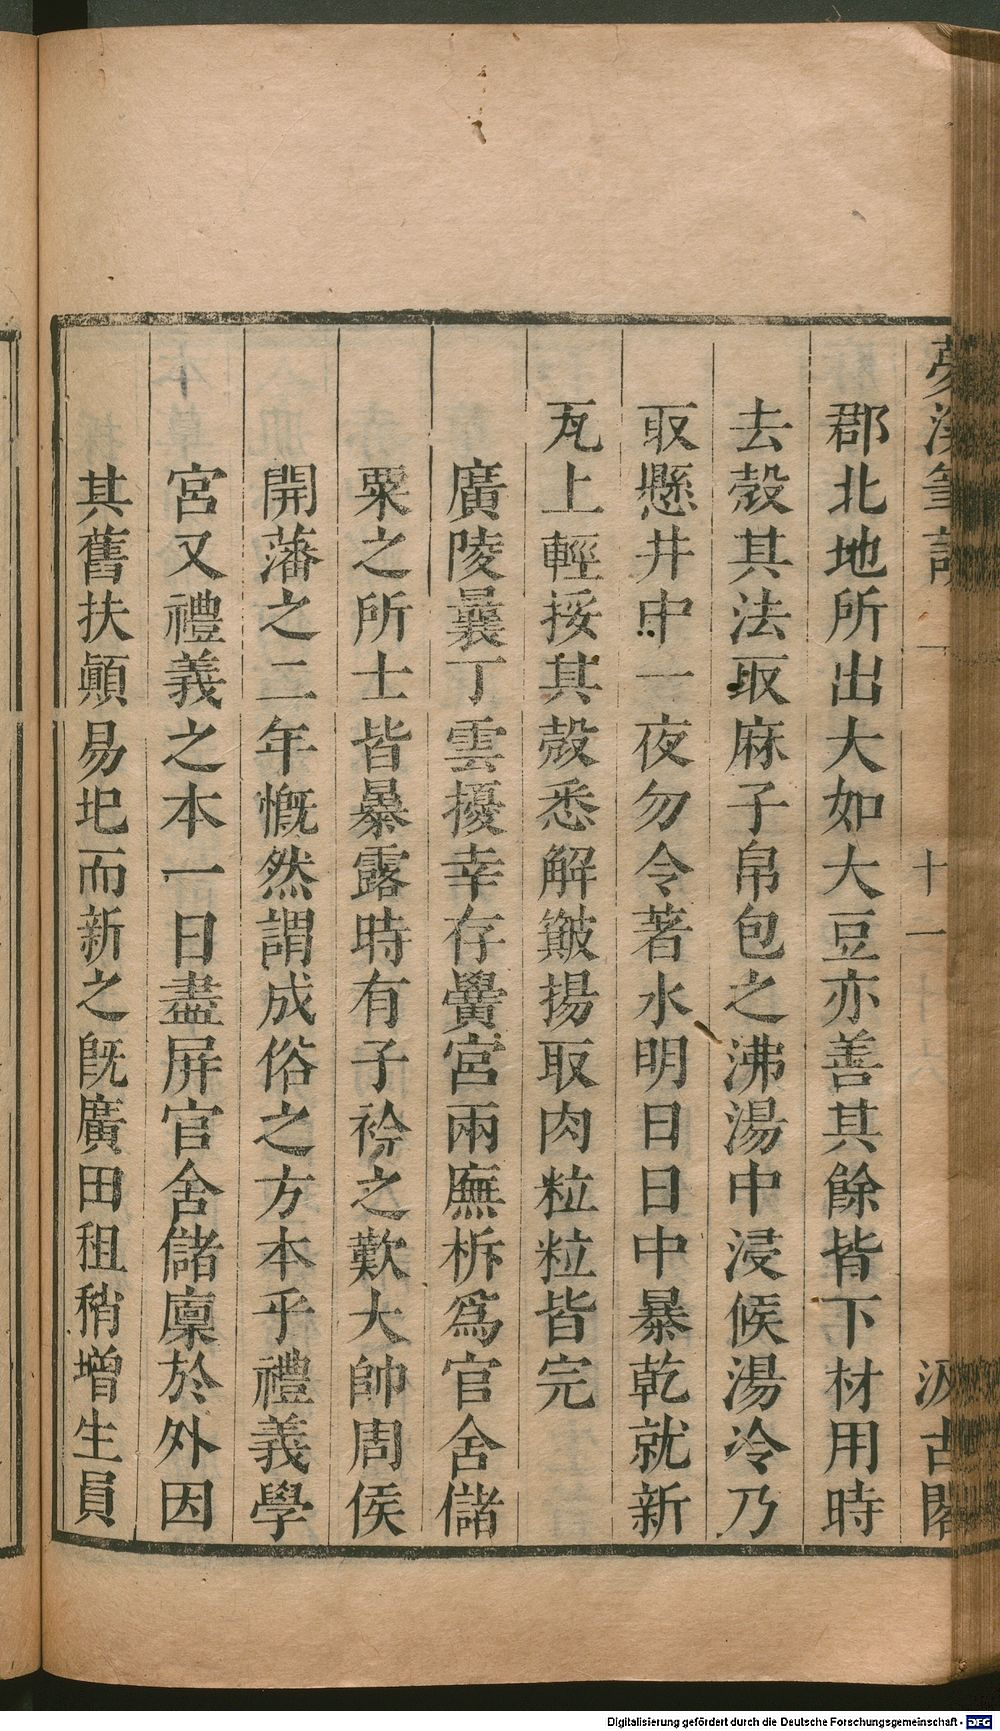 夢溪筆談
十一
汲古閣
郡北地所出大如大豆亦善其餘皆下材用時
去殼其法取麻子帛包之沸湯中浸候湯冷乃
取懸井中一夜勿令著水明日日中暴乾就新
瓦上輕挼其殼悉解簸揚取肉粒粒皆完
廣陵曩丁雲擾幸存黌宮兩廡柝為官舍儲
粟之所士皆暴露時有子衿之歎大帥周侯
開藩之二年慨然謂成俗之方本乎禮義學
宮又禮義之本一日盡屏官舍儲廩於外因
其舊扶顚易圯而新之旣廣田租稍增生員
Digitalisierung gefördert durch die Deutsche Forschungsgemeinschaft - DFG